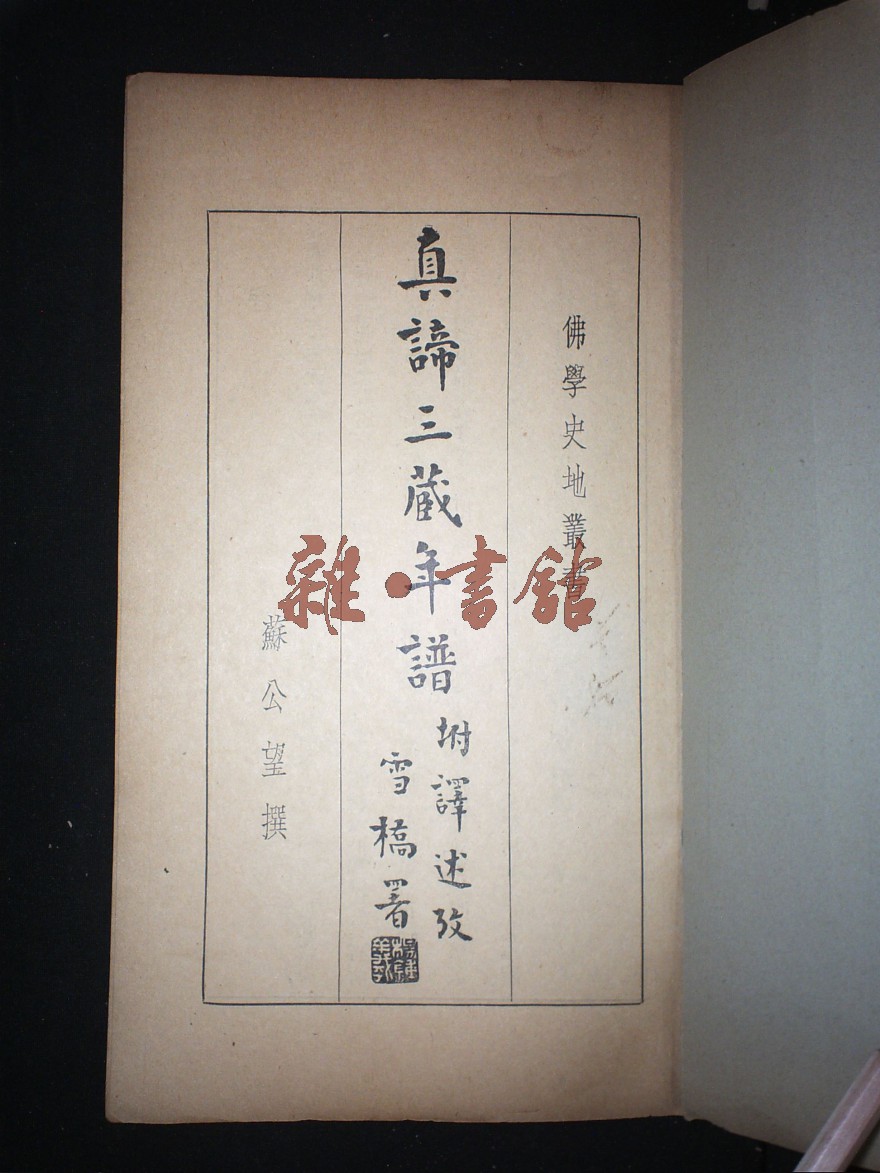 佛學史地叢書
真諦三蔵年譜
坿譯述攷
雪橋署
楊鍾羲
蘇公望撰
雜·書館